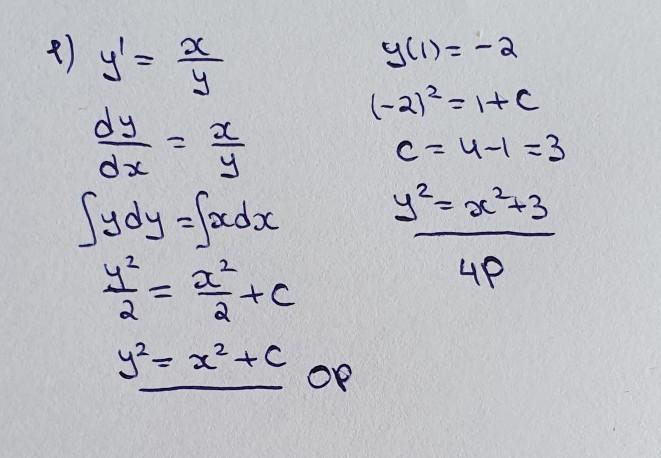 1) y' = x/y
dy/dx = x/y
∫ydy = ∫xdx
y²/2 = x²/2 + C
y² = x² + C OP
y(1) = -2
(-2)² = 1 + C
C = 4 - 1 = 3
y² = x² + 3
4P